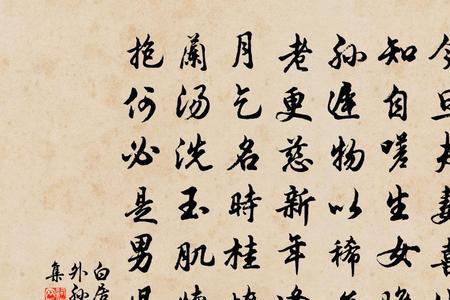 今旦夫妻喜
知自嗟生女
孙遲物以稀
老更慈新年
月乞名時桂
蘭汤洗玉肌
抱何必是男
白居
外孙
集